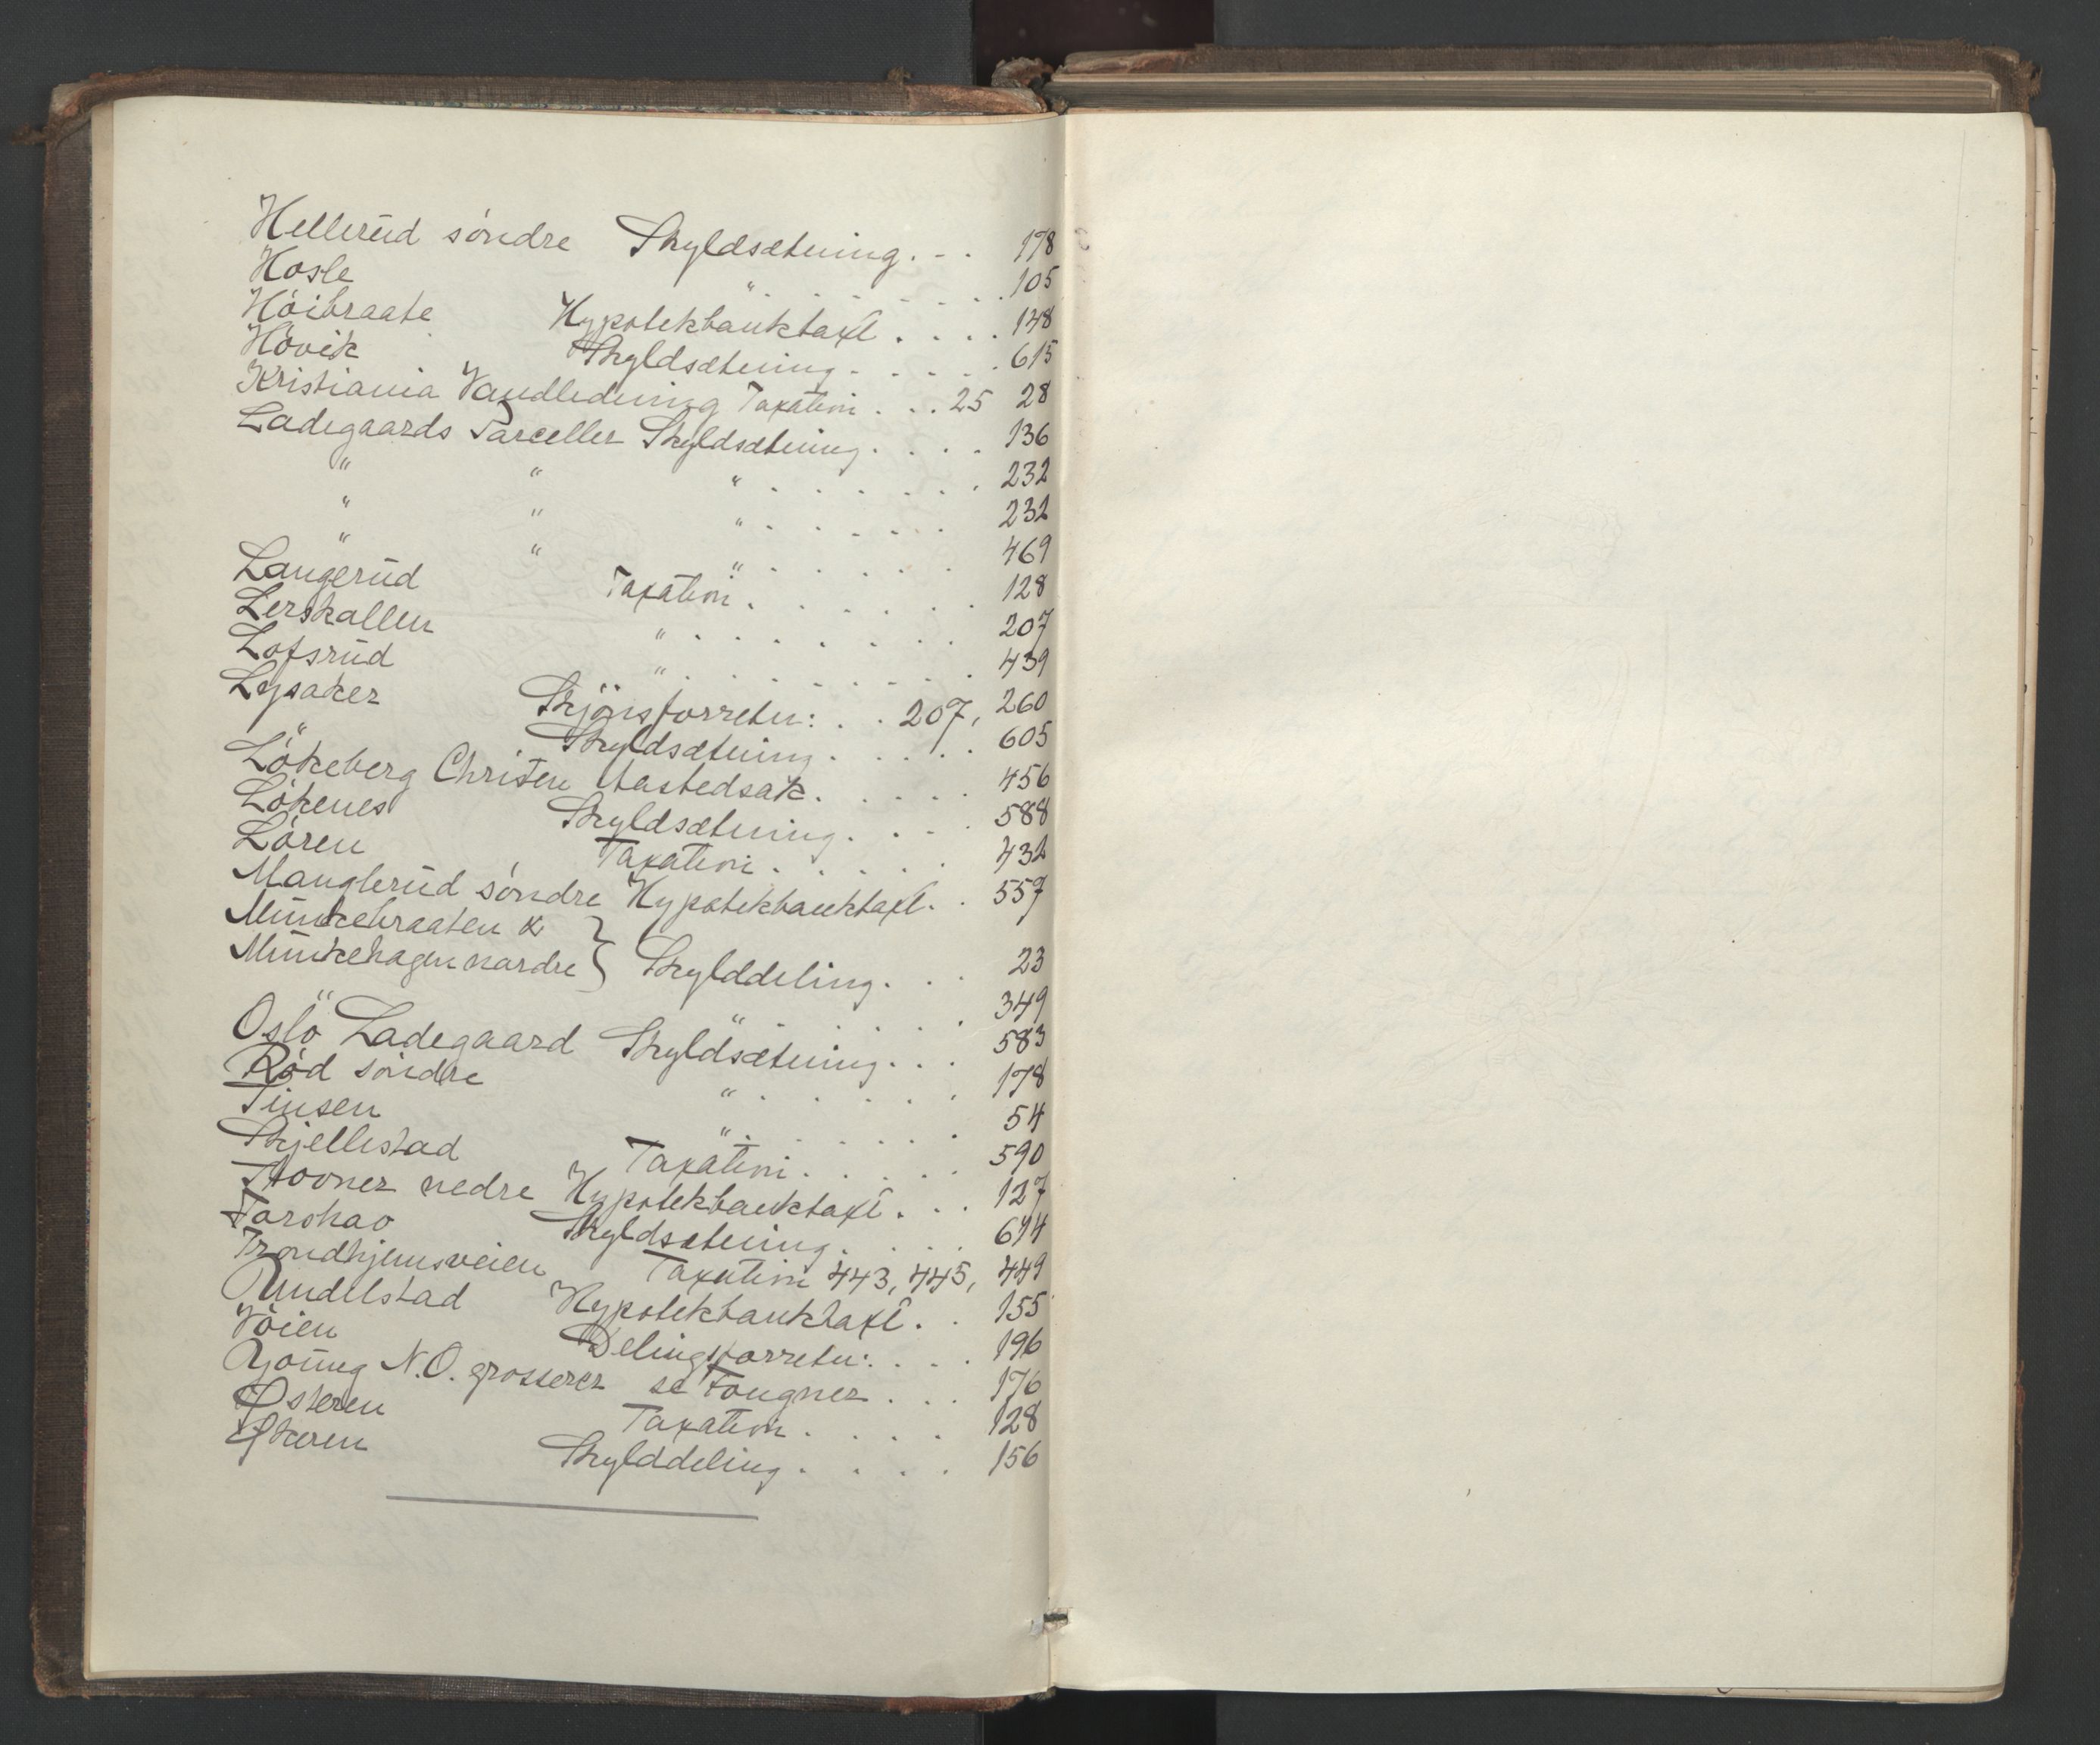 Hellerud söndre Skyldsætning. - . 178
Hosle " . . . . . . 105
Höibraate Hypotekbanktaxt . . . . 148
Hövik Skyldsætning . . . . . 615
Kristiania Vandledning Taxation . . . 25 28
Ladegaards Parceller Skyldsætning . . . . 136
" " " . . . . . . 232
" " " . . . . . 232
" " " . . . . . 469
Langerud Taxation . . . . . . 128
Lerskallen " . . . . . . 207
Lofsrud " . . . . . . . 439
Lysaker Skjönsforretn: . . 207, 260
" Skyldsætning . . . . 605
Lökeberg Christen Aastedsak . . . . . 456
Lökenes Skyldsætning . . . . 588
Lören Taxation . . . . . 432
Manglerud söndre Hypotekbanktaxt . . 557
Munkebraaten &
Munkehagen nordre } Skylddeling . . . 23
" " . . . . . 349
Oslo Ladegaard Skyldsætning . . . 583
Röd söndre " . . . . . 178
Tinsen " . . . . . . 54
Skjellestad Taxation . . . . . 590
Stovner nedre Hypotekbanktaxt . . . 127
Torshao Skyldsætning . . . . 674
Trondhjemsveien Taxation 443, 445, 449
Undelstad Hypotekbanktaxt . . 155
Vöien Delingsforretn: . . . . 196
Young N.O. grosserer se Fougner . . . 176
Østeren Taxation . . . . 128
Økeren Skylddeling . . . . 156